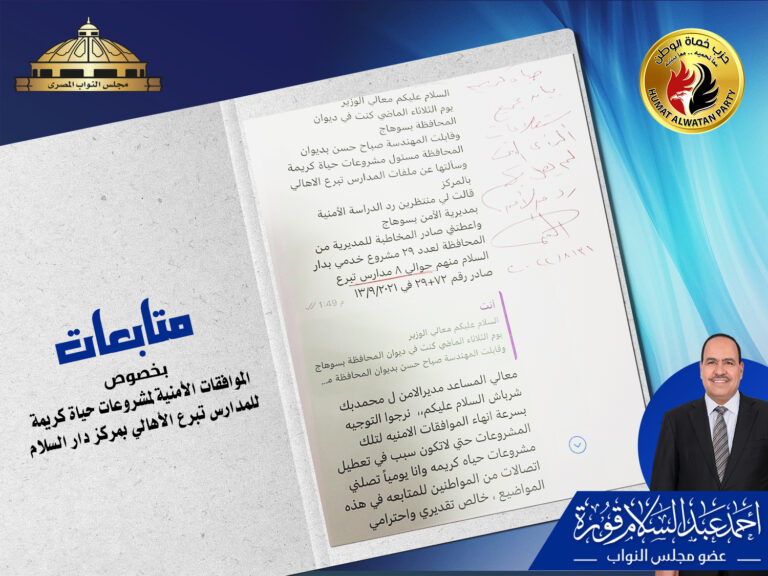 مجلس النواب المصرى
حزب حُماة الوطن
HUMAT ALWATAN PARTY
متابعات
بخصوص
الموافقات الأمنية لمشروعات حياة كريمة
للمدارس تبرع الأهالي بمركز دار السلام
السلام عليكم معالي الوزير
يوم الثلاثاء الماضي كنت في ديوان
المحافظة بسوهاج
وقابلت المهندسة صباح حسن بديوان
المحافظة مسئول مشروعات حياة كريمة
وسألتها عن ملفات المدارس تبرع الاهالي
بالمركز
قالت لي منتظرين رد الدراسة الأمنية
بمديرية الأمن بسوهاج
واعطتني صادر المخاطبة للمديرية من
المحافظة لعدد ٢٩ مشروع خدمي بدار
السلام منهم حوالي ٨ مدارس تبرع
صادر رقم ٧٢+٢٩ في ١٣/٩/٢٠٢١
1:49 م
أنت
السلام عليكم معالي الوزير
يوم الثلاثاء الماضي كنت في ديوان المحافظة بسوهاج
وقابلت المهندسة صباح حسن بديوان المحافظة مـ...
معالي المساعد مديرالامن ل محمدبك
شرباش السلام عليكم،، نرجوا التوجيه
بسرعة انهاء الموافقات الامنيه لتلك
المشروعات حتي لاتكون سبب في تعطيل
مشروعات حياه كريمه وانا يومياً تصلني
اتصالات من المواطنين للمتابعه في هذه
المواضيع ، خالص تقديري واحترامي
أحمد عبد السلام قورة
عضو مجلس النواب